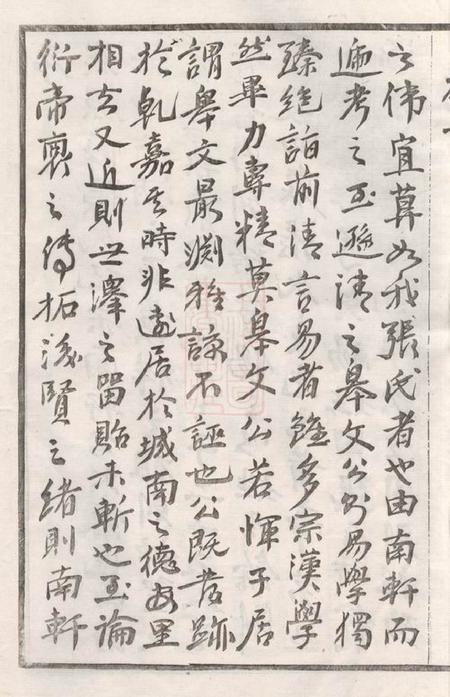 之偉宜莫如我張氏者也由南軒而
遞考之至遜清之皋文公躬易學獨
臻絕詣前清言易者雖多宗漢學
然畢力專精莫皋文公若惲子居
謂皋文最淵雅諒不誣也公既發跡
於乾嘉其時非遠居於城南之德安里
相去又近則世澤之留貽未斬也至論
衍帝裏之傳拓淺賢之緒則南軒